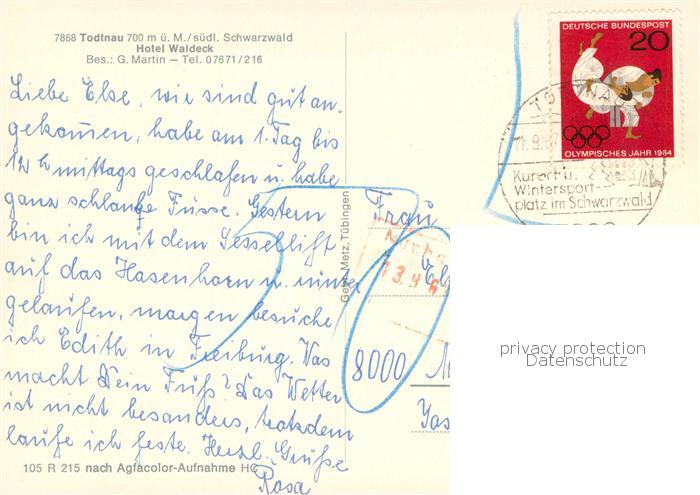 7868 Todtnau 700 m ü. M./südl. Schwarzwald
Hotel Waldeck
Bes.: G. Martin — Tel. 07671/216
Liebe Else, wir sind gut an-
gekommen, habe am 1. Tag bis
12 h mittags geschlafen u. habe
ganz schlanke Füsse. Gestern
bin ich mit dem Sessellift
auf das Hasenhorn u. runter
gelaufen, morgen besuche
ich Edith in Freiburg. Was
macht Dein Fuß? Das Wetter
ist nicht besonders, trotzdem
laufe ich feste. Herzl. Grüße
Rosa
105 R 215 nach Agfacolor-Aufnahme HC
Gebr. Metz, Tübingen
DEUTSCHE BUNDESPOST
20
OLYMPISCHES JAHR 1964
11.9.
Kurort u.
Wintersport-
platz im Schwarzwald
Frau
13.9.6
8000 M
privacy protection
Datenschutz